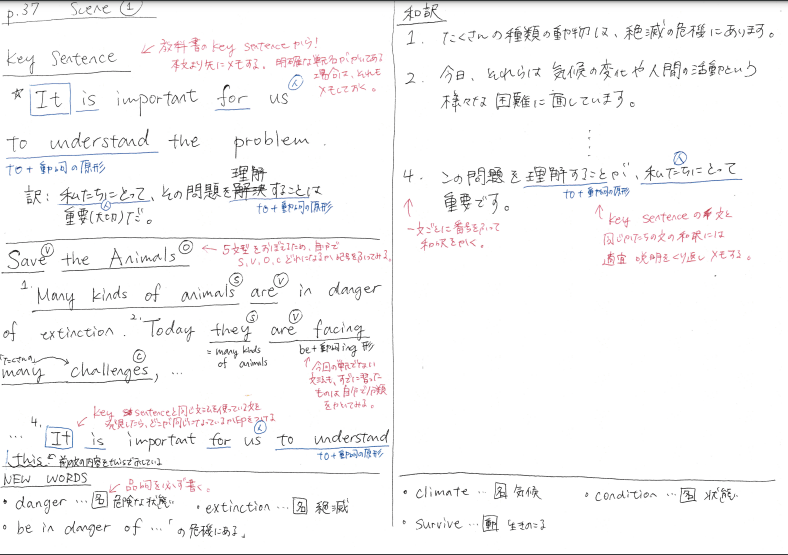 p.37 Scene ①
Key Sentence
← 教科書のKey Sentenceから!
本文より先にメモする。明確な単元名がかいてある
場合は、それも
メモしておく。
☆ It is important for us 人
to understand the problem.
to+動詞の原形
理解
訳: 私たちにとって、その問題を解決することは
重要(大切)だ。
人
to+動詞の原形
Save Ⓥ the Animals Ⓞ
← 5文型をおぼえるため、自分で
S,V,O,C どれになるか記号をふってみる。
1. Many kinds of animals Ⓢ are Ⓥ in danger
of extinction. 2. Today they Ⓢ are Ⓥ facing
= many kinds
of animals
be+動詞ing 形
「たくさんの」
many challenges Ⓒ, …
↑今回の単元でない
文法も、すでに習った
ものは自分で分類
をかいてみる。
← Key Sentenceと同じ文法を使っている文を
発見したら、どこが同じになっているか印をつける
… 4. It is important for us 人 to understand
to+動詞の原形
this. ← 前の文の内容をthisで示している
NEW WORDS
← 品詞を必ず書く。
・danger … 名 危険な状態
・extinction … 名 絶滅
・be in danger of …「の危機にある」
和訳
1. たくさんの種類の動物は、絶滅の危機にあります。
2. 今日、それらは気候の変化や人間の活動という
様々な困難に面しています。
4. この問題を理解することが、私たちにとって
人
to+動詞の原形
重要です。
↑
一文ごとに番号をふって
和訳をかく。
↑
Key Sentenceの文と
同じかたちの文の和訳には
適宜説明をくり返しメモする。
・climate … 名 気候
・condition … 名 状態
・survive … 動 生きのこる